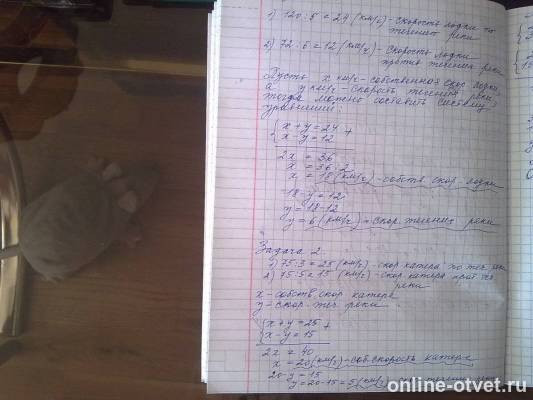 1) 120 : 5 = 24 (км/ч) - скорость лодки по
течению реки
2) 72 : 6 = 12 (км/ч) - скорость лодки
против течения реки
Пусть х км/ч - собственная скор. лодки,
а у км/ч - скорость течения реки,
тогда можно составить систему
уравнений:
{х + у = 24 +
{х - у = 12
2х = 36
х = 36 : 2
х = 18 (км/ч) - собств. скор. лодки
18 - у = 12
у = 18 - 12
у = 6 (км/ч) - скор. течения реки
Задача 2.
1) 75 : 3 = 25 (км/ч) - скор катера по теч. реки
2) 75 : 5 = 15 (км/ч) - скор. катера прот. теч.
реки
х - собств. скор. катера
у - скор. теч. реки
{х + у = 25 +
{х - у = 15
2х = 40
х = 20 (км/ч) - соб. скорость катера
20 - у = 15
у = 20 - 15 = 5 (км/ч) - течения реки
online-otvet.ru